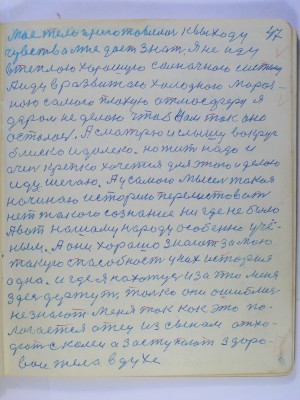 Мое тело приготовилось к выходу 47
чувства мне дает знать, я не иду
в теплою хорошую солнечного систему
Я иду в развитою холодною мороз-
ною самого плохую атмосферу я
даром не делаю чтоб вам так оно
осталось. А смотрю и слышу вокруг
близко и далеко. но жить надо и
очень крепко хочется для этого и делаю
иду, шагаю. А у самого мысль такая
начинаю историю перелистовать
нет такого сознание ни где не было
А вот нашему народу особенно учё-
ным. А они хорошо знают за мою
такую способность у них история
одна. и где я нахожусь и за что меня
здесь держут, только они ошиблись
не знают меня так как это по-
логается отец из сынам отхо-
дит с колеи а заступают здоро-
вым тела в духе